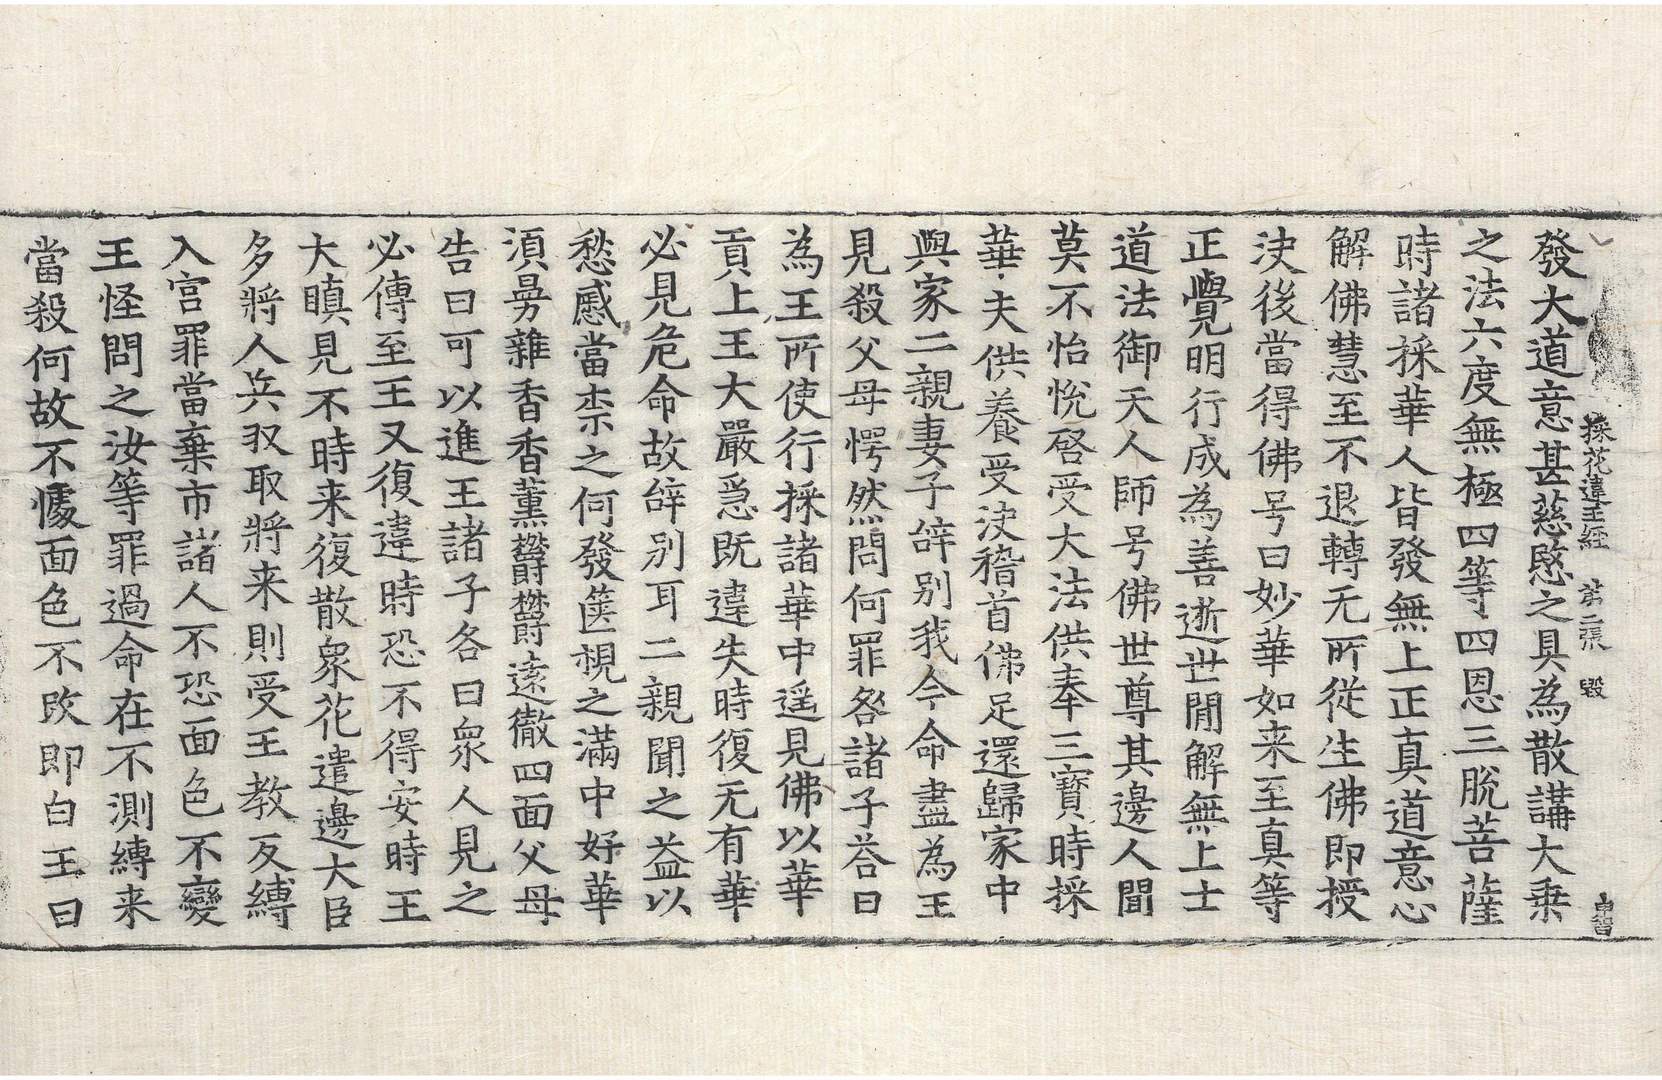 採花違王經 第二張 毀 卓習
發大道意甚慈愍之具為散講大乗
之法六度無極四等四恩三脫菩薩
時諸採華人皆發無上正真道意心
解佛慧至不退轉无所從生佛即授
決後當得佛号曰妙華如来至真等
正覺明行成為善逝世間解無上士
道法御天人師号佛世尊其邊人聞
莫不怡悅啓受大法供奉三寶時採
華夫供養受決稽首佛足還歸家中
與家二親妻子辝別我今命盡為王
見殺父母愕然問何罪咎諸子荅曰
為王所使行採諸華中遥見佛以華
貢上王大嚴急既違失時復无有華
必見危命故辝別耳二親聞之益以
愁慼當柰之何發篋視之滿中好華
須曼雜香香薰欝欝遠徹四面父母
告曰可以進王諸子各曰衆人見之
必傳至王又復違時恐不得安時王
大瞋見不時来復散衆花遣邊大臣
多將人兵収取將来則受王教反縛
入宮罪當棄市諸人不恐面色不變
王怪問之汝等罪過命在不測縛来
當殺何故不懅面色不改即白王曰